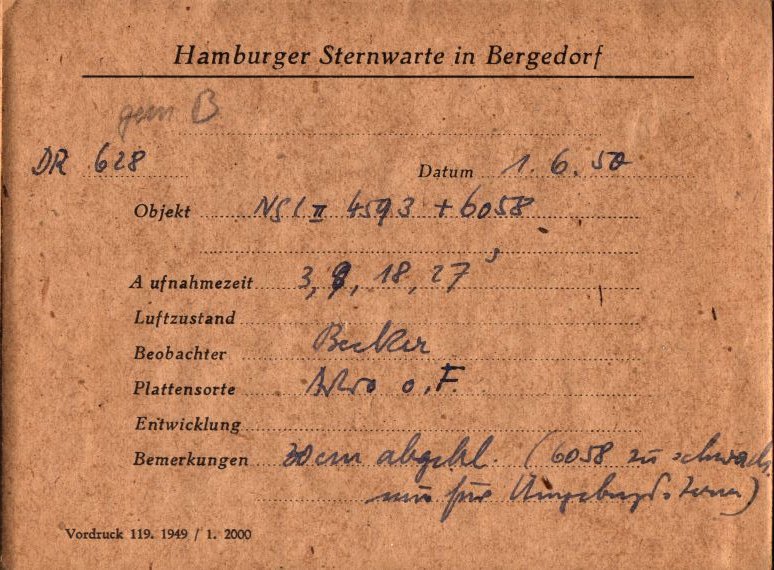 Hamburger Sternwarte in Bergedorf
gem B
DR 628
Datum 1. 6. 50
Objekt NGC II 4593 + 6058
Aufnahmezeit 3, 9, 18, 27 s
Luftzustand
Beobachter Becker
Plattensorte Astro o. F.
Entwicklung
Bemerkungen 30cm abgebl. (6058 zu schwach,
nur für Umgebungssterne)
Vordruck 119. 1949 / 1. 2000